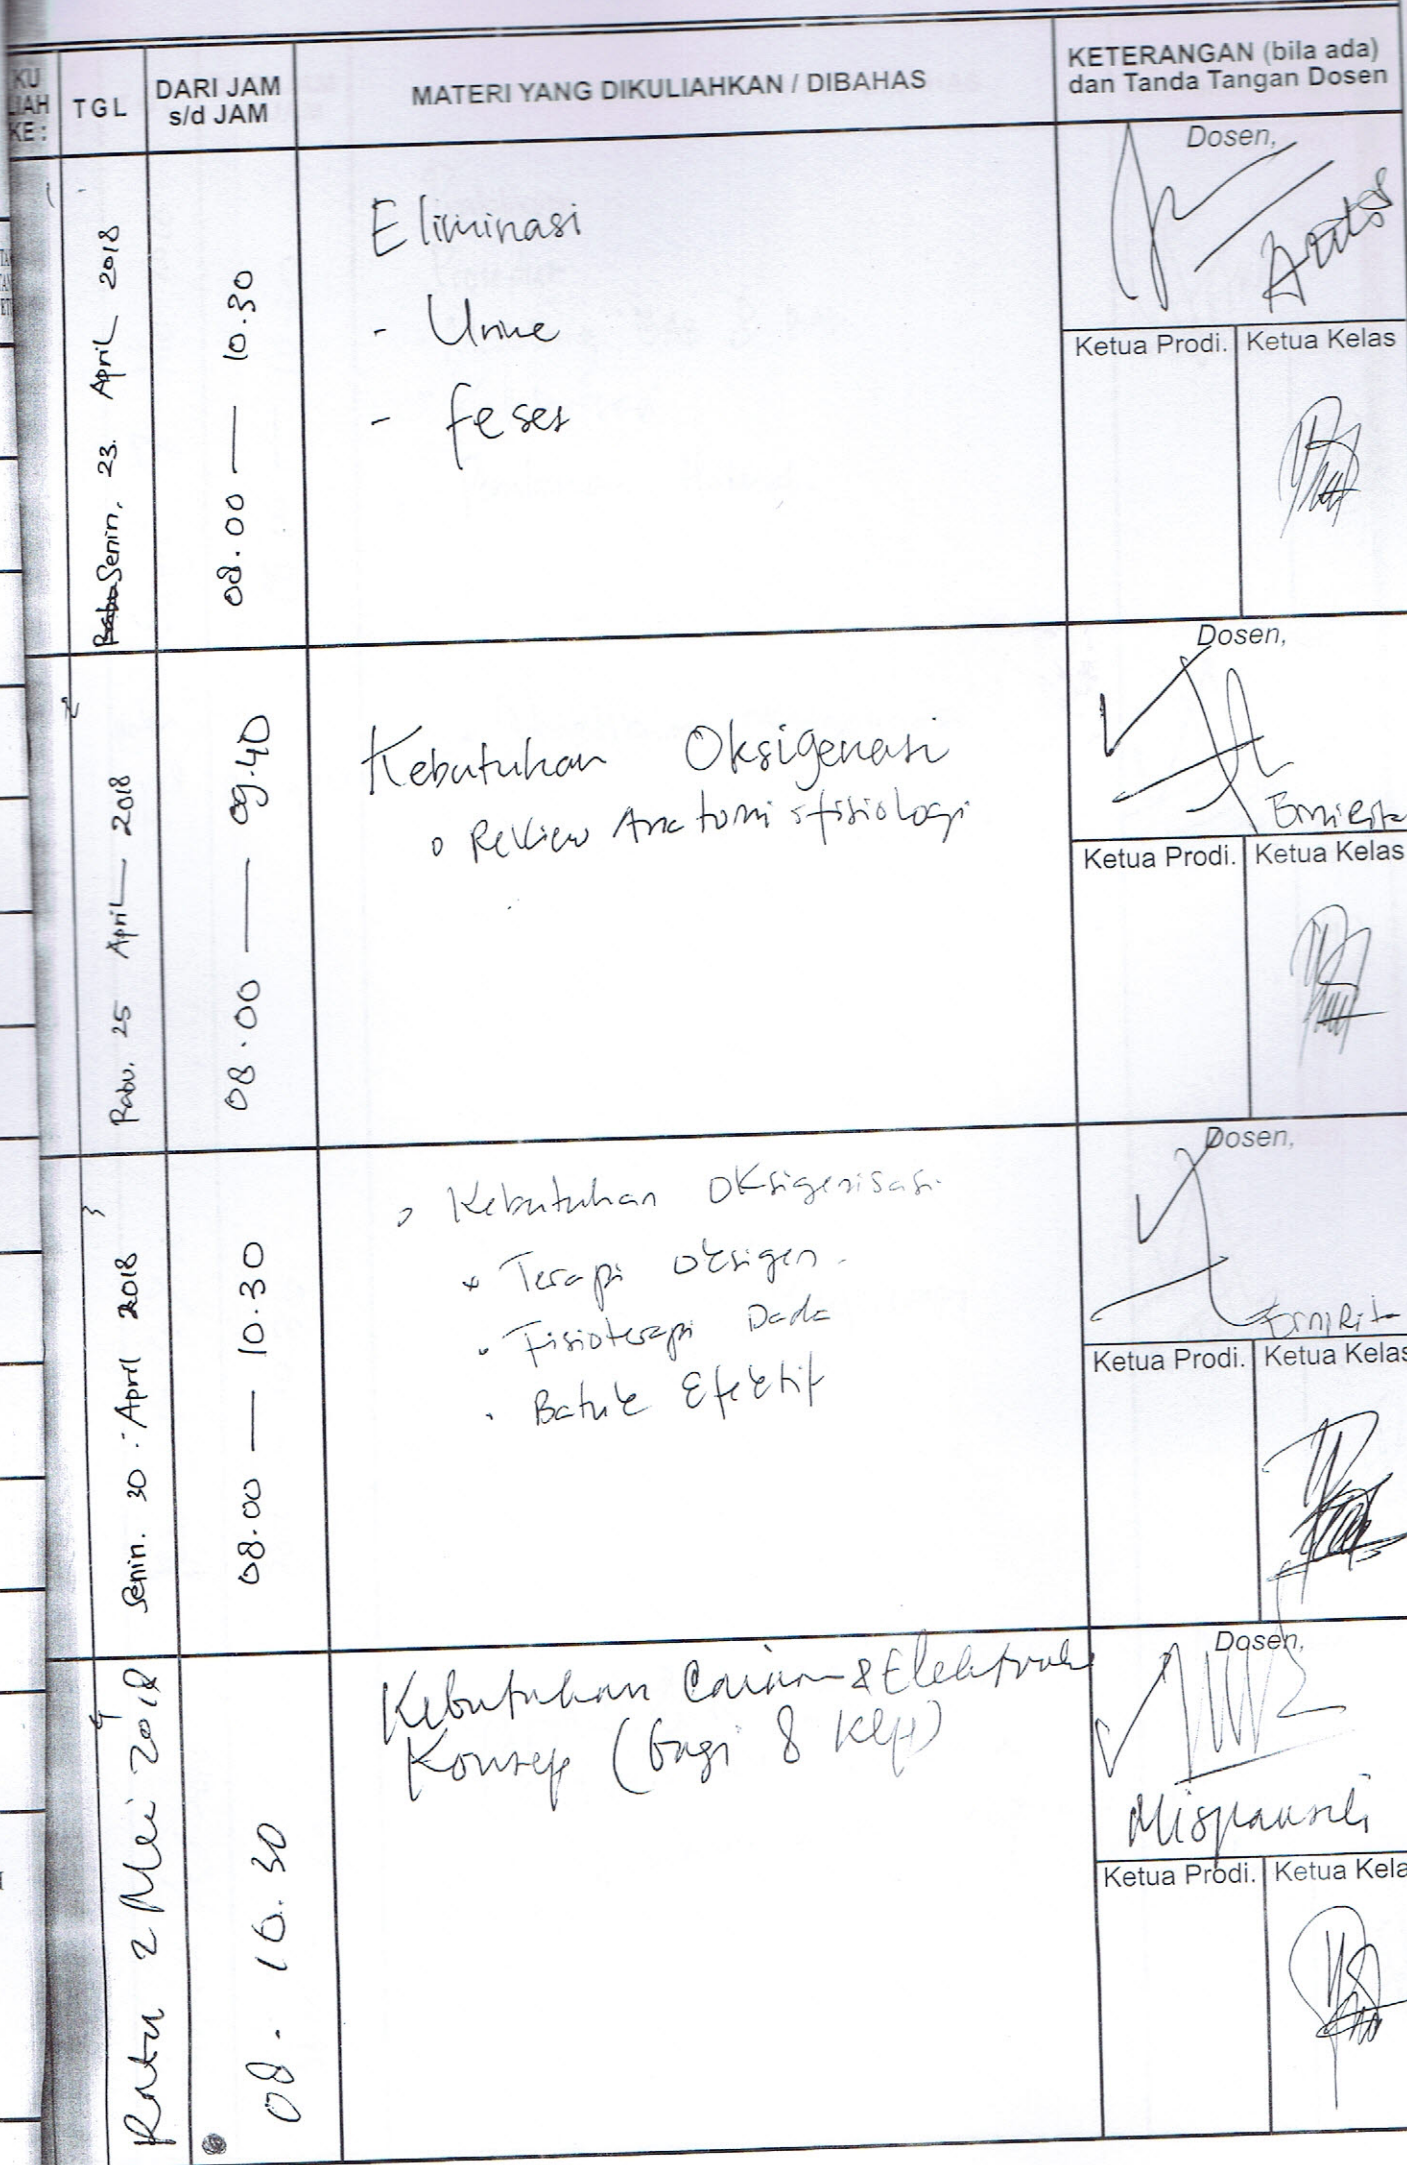 KU
LIAH
KE :
TGL
DARI JAM
s/d JAM
MATERI YANG DIKULIAHKAN / DIBAHAS
KETERANGAN (bila ada)
dan Tanda Tangan Dosen
1
Senin, 23. April 2018
08.00 — 10.30
Eliminasi
- Urine
- feses
Dosen,
Ketua Prodi.
Ketua Kelas
2
Rabu, 25 April — 2018
08.00 — 09.40
Kebutuhan Oksigenasi
o Review Anatomi + fisiologi
Dosen,
Erni Rita
Ketua Prodi.
Ketua Kelas
3
Senin. 30. April 2018
08.00 — 10.30
o Kebutuhan Oksigenisasi
* Terapi Oksigen.
• Fisioterapi Dada
• Batuk Efektif
Dosen,
Erni Rita
Ketua Prodi.
Ketua Kelas
4
Rabu 2 Mei 2018
08 - 10.30
Kebutuhan Cairan & Elektrolit
Konsep (bagi 8 Klp)
Dosen,
Ketua Prodi.
Ketua Kela